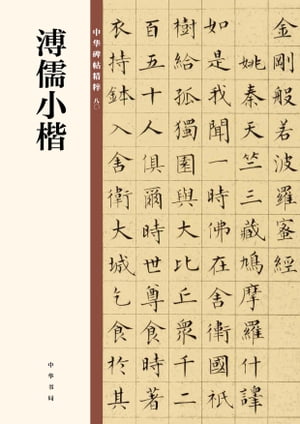 溥儒小楷
中华碑帖精粹
八〇
中华书局
金剛般若波羅蜜經
姚秦天竺三藏鳩摩羅什譯
如是我聞一時佛在舍衛國祇
樹給孤獨園與大比丘眾千二
百五十人俱爾時世尊食時著
衣持鉢入舍衛大城乞食於其